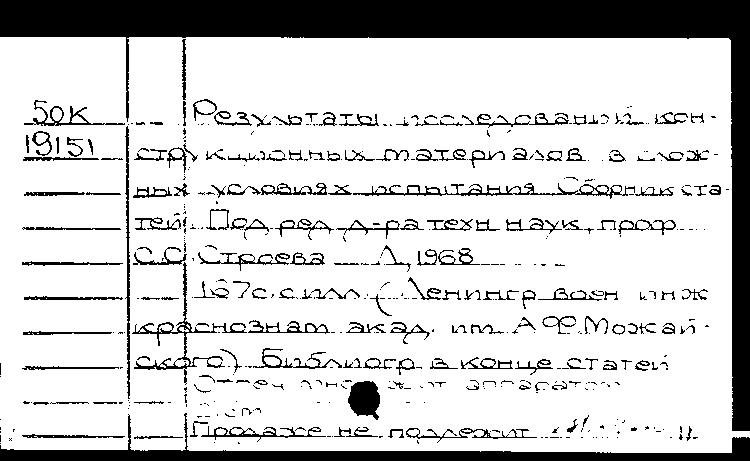 50К Результаты исследований кон-
19151 струкционных материалов в слож-
ных условиях испытания Сборник ста-
тей. Под ред д-ра техн наук, проф
С.С. Строева Л, 1968
167с. с илл (Ленингр воен инж
краснознам акад. им. А Ф. Можай-
ского) Библиогр в конце статей
Отпеч аппаратом
Продаже не подлежит